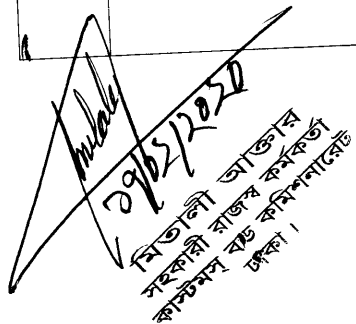 ২৭/০১/২০২০
মিতালী আক্তার
সহকারী রাজস্ব কর্মকর্তা
কাস্টমস বন্ড কমিশনারেট
ঢাকা।